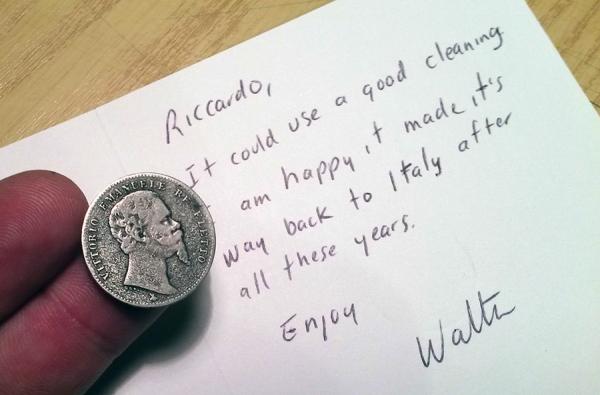 Riccardo,
It could use a good cleaning
I am happy it made it's
way back to Italy after
all these years.
Enjoy
Walter
VITTORIO EMANUELE RE ELETTO